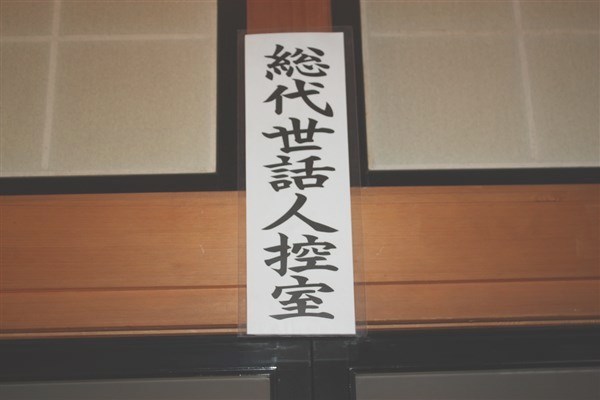 総代世話人控室